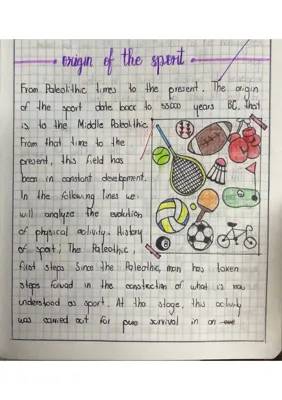 origin of the sport
From Paleolithic times to the present. The origin
of the sport date back to 55000 years BC, that
is to the Middle Paleolithic
From that time to the
present, this field has
been in constant development.
In the following lines we
will analyze the evolution
of physical activity. History
of sport; The Paleolithic
first steps Since the Paleolithic, man has taken
steps forward in the construction of what is now
understood as sport. At tha stage, this activity
was carried out for pure survival in an